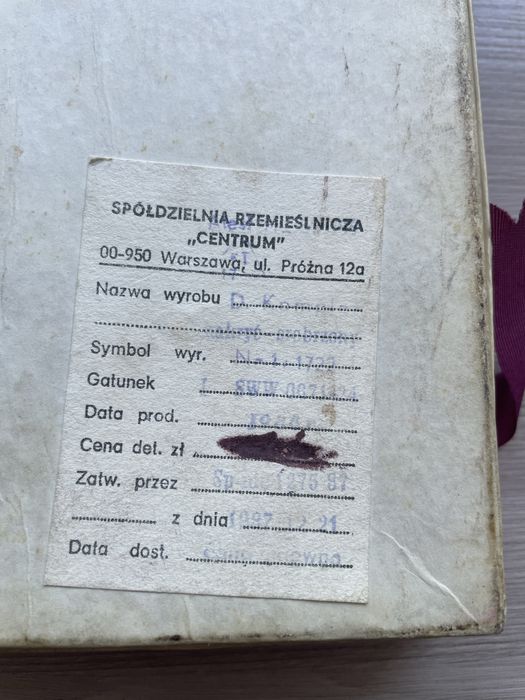 SPÓŁDZIELNIA RZEMIEŚLNICZA
„CENTRUM”
00-950 Warszawa, ul. Próżna 12a
Nazwa wyrobu
Symbol wyr. Nr 1-1723
Gatunek I SWW
Data prod.
Cena det. zł
Zatw. przez 1276 87
z dnia 1987 21
Data dost.